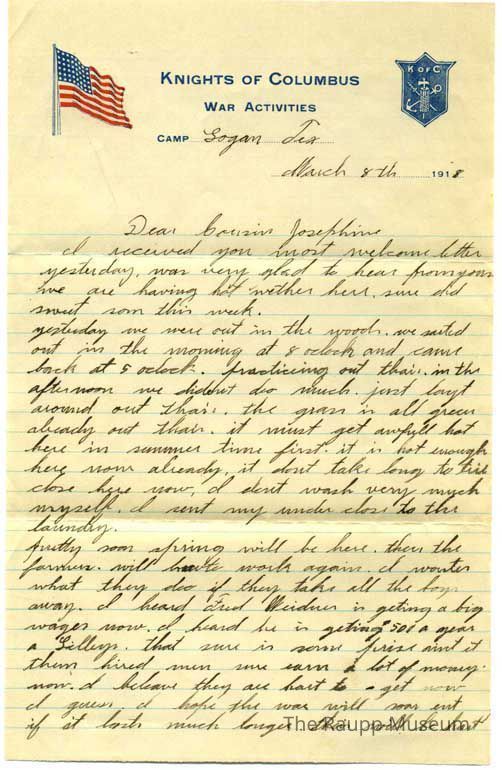 KNIGHTS OF COLUMBUS
WAR ACTIVITIES
K OF C
CAMP Logan Tex
March 8th 1918
Dear Cousin Josephine
I received you most welcome letter
yesterday, was very glad to hear from you
we are having hot wether here. sure did
sweat som this week.
yesterday we were out in the woods. we
out in the morning at 8 oclock and came
back at 5 oclock. practicing out thair. in the
afternoon we dident do much. just layt
around out thair. the grass is all green
already out thair. it must get awfull hot
here in summer time first. it is hot enough
here now already, it dont take long to
close here now, I dont wash very much
myself. I sent my under close to the
laundry.
pretty soon spring will be here. then the
farmers will work again. I wonter
what they doo if they take all the boys
away. I heard Fred Weidner is geting a big
wages now. I heard he is geting 500 a year
a Gilleys. that sure is some price aint it
them hired men sure earn a lot of money.
now. I beleave they are hart to get now
I guess. I hope the war will soon ent
if it lasts much longer
The Raupp Museum